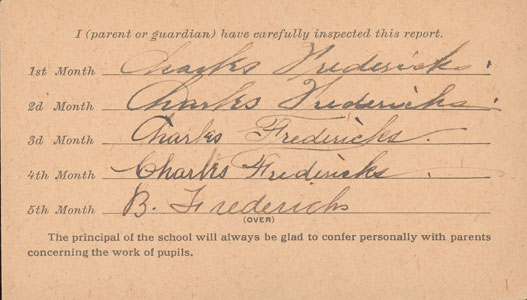 I (parent or guardian) have carefully inspected this report.
1st Month Charles Fredericks.
2d Month Charles Fredericks.
3d Month Charles Fredericks.
4th Month Charles Fredericks.
5th Month B. Fredericks
(OVER)
The principal of the school will always be glad to confer personally with parents
concerning the work of pupils.